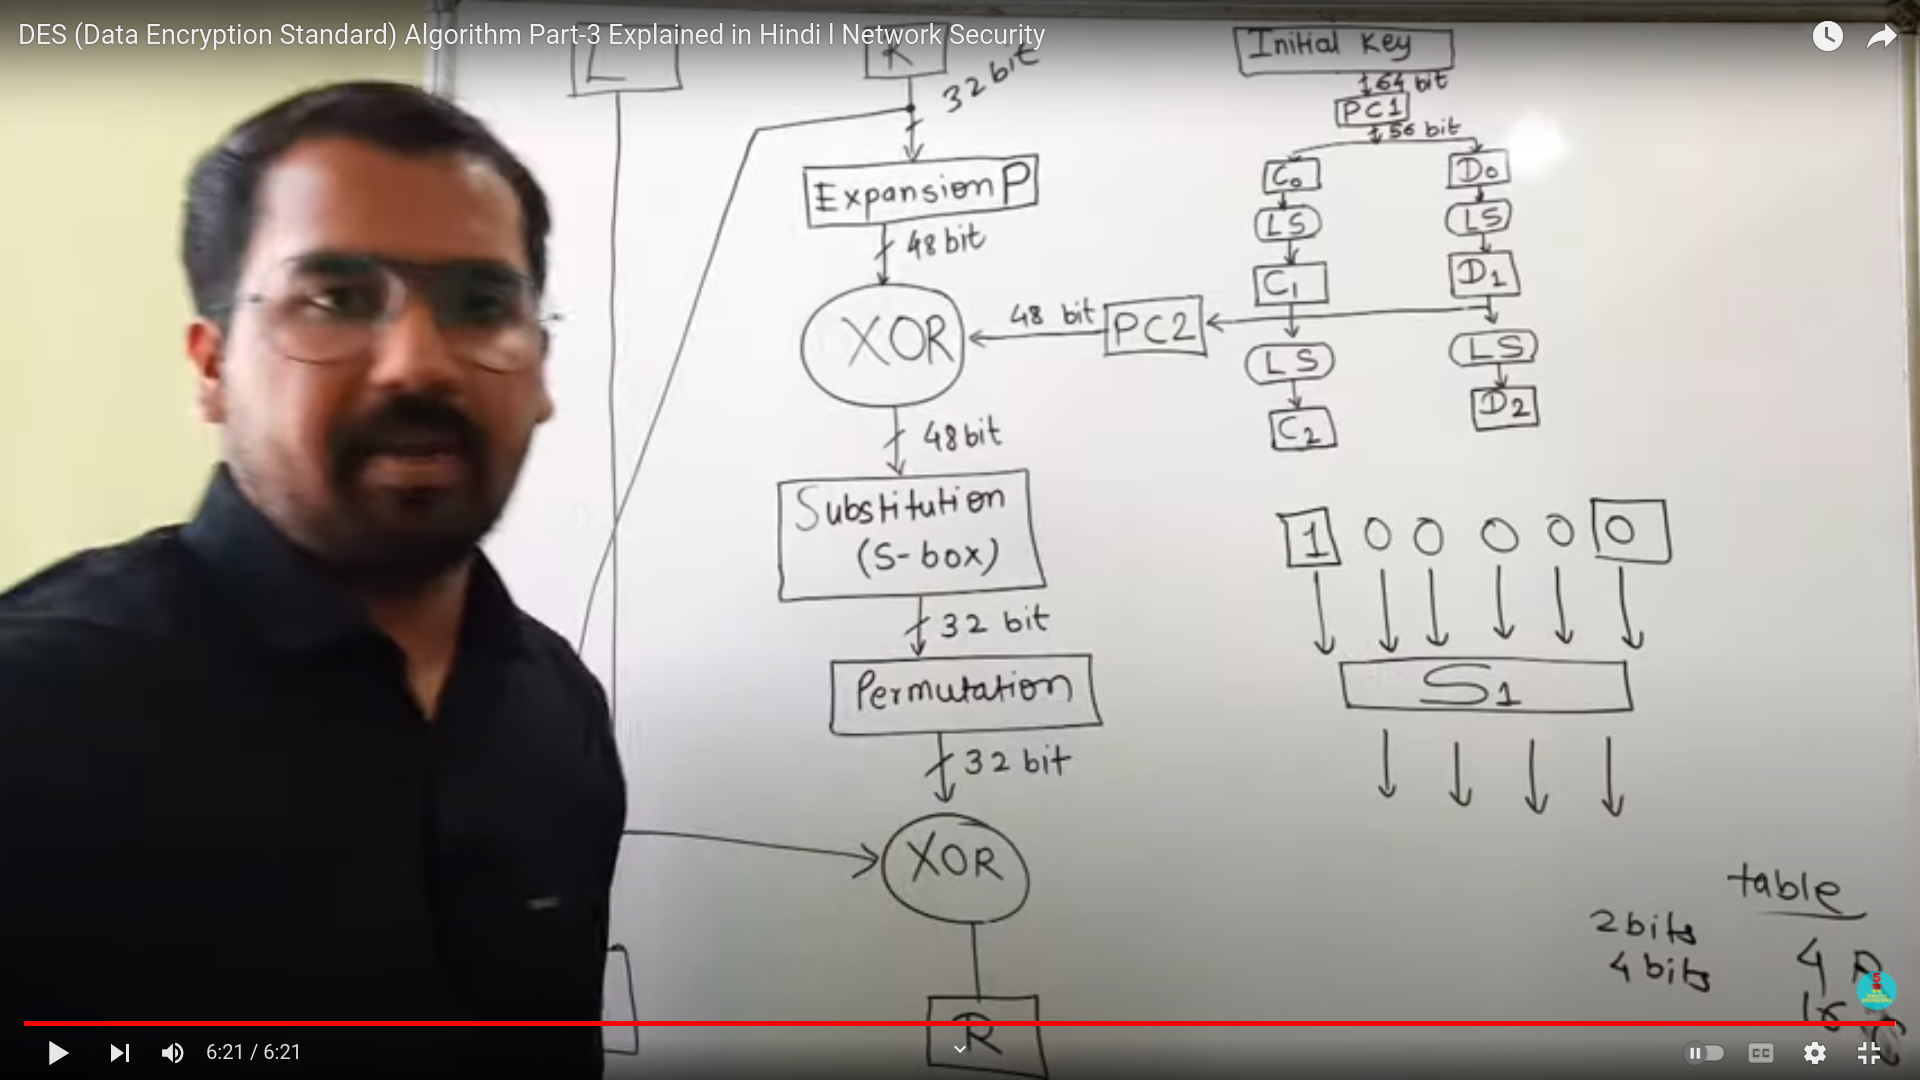 DES (Data Encryption Standard) Algorithm Part-3 Explained in Hindi l Network Security
L
R
32 bit
Expansion P
48 bit
XOR
48 bit
Substitution
(S-box)
32 bit
Permutation
32 bit
XOR
R
Initial Key
64 bit
PC1
56 bit
C0
D0
LS
LS
C1
D1
48 bit
PC2
LS
LS
C2
D2
1 0 0 0 0 0
S1
table
2 bits
4 R
4 bits
16
6:21 / 6:21
CC